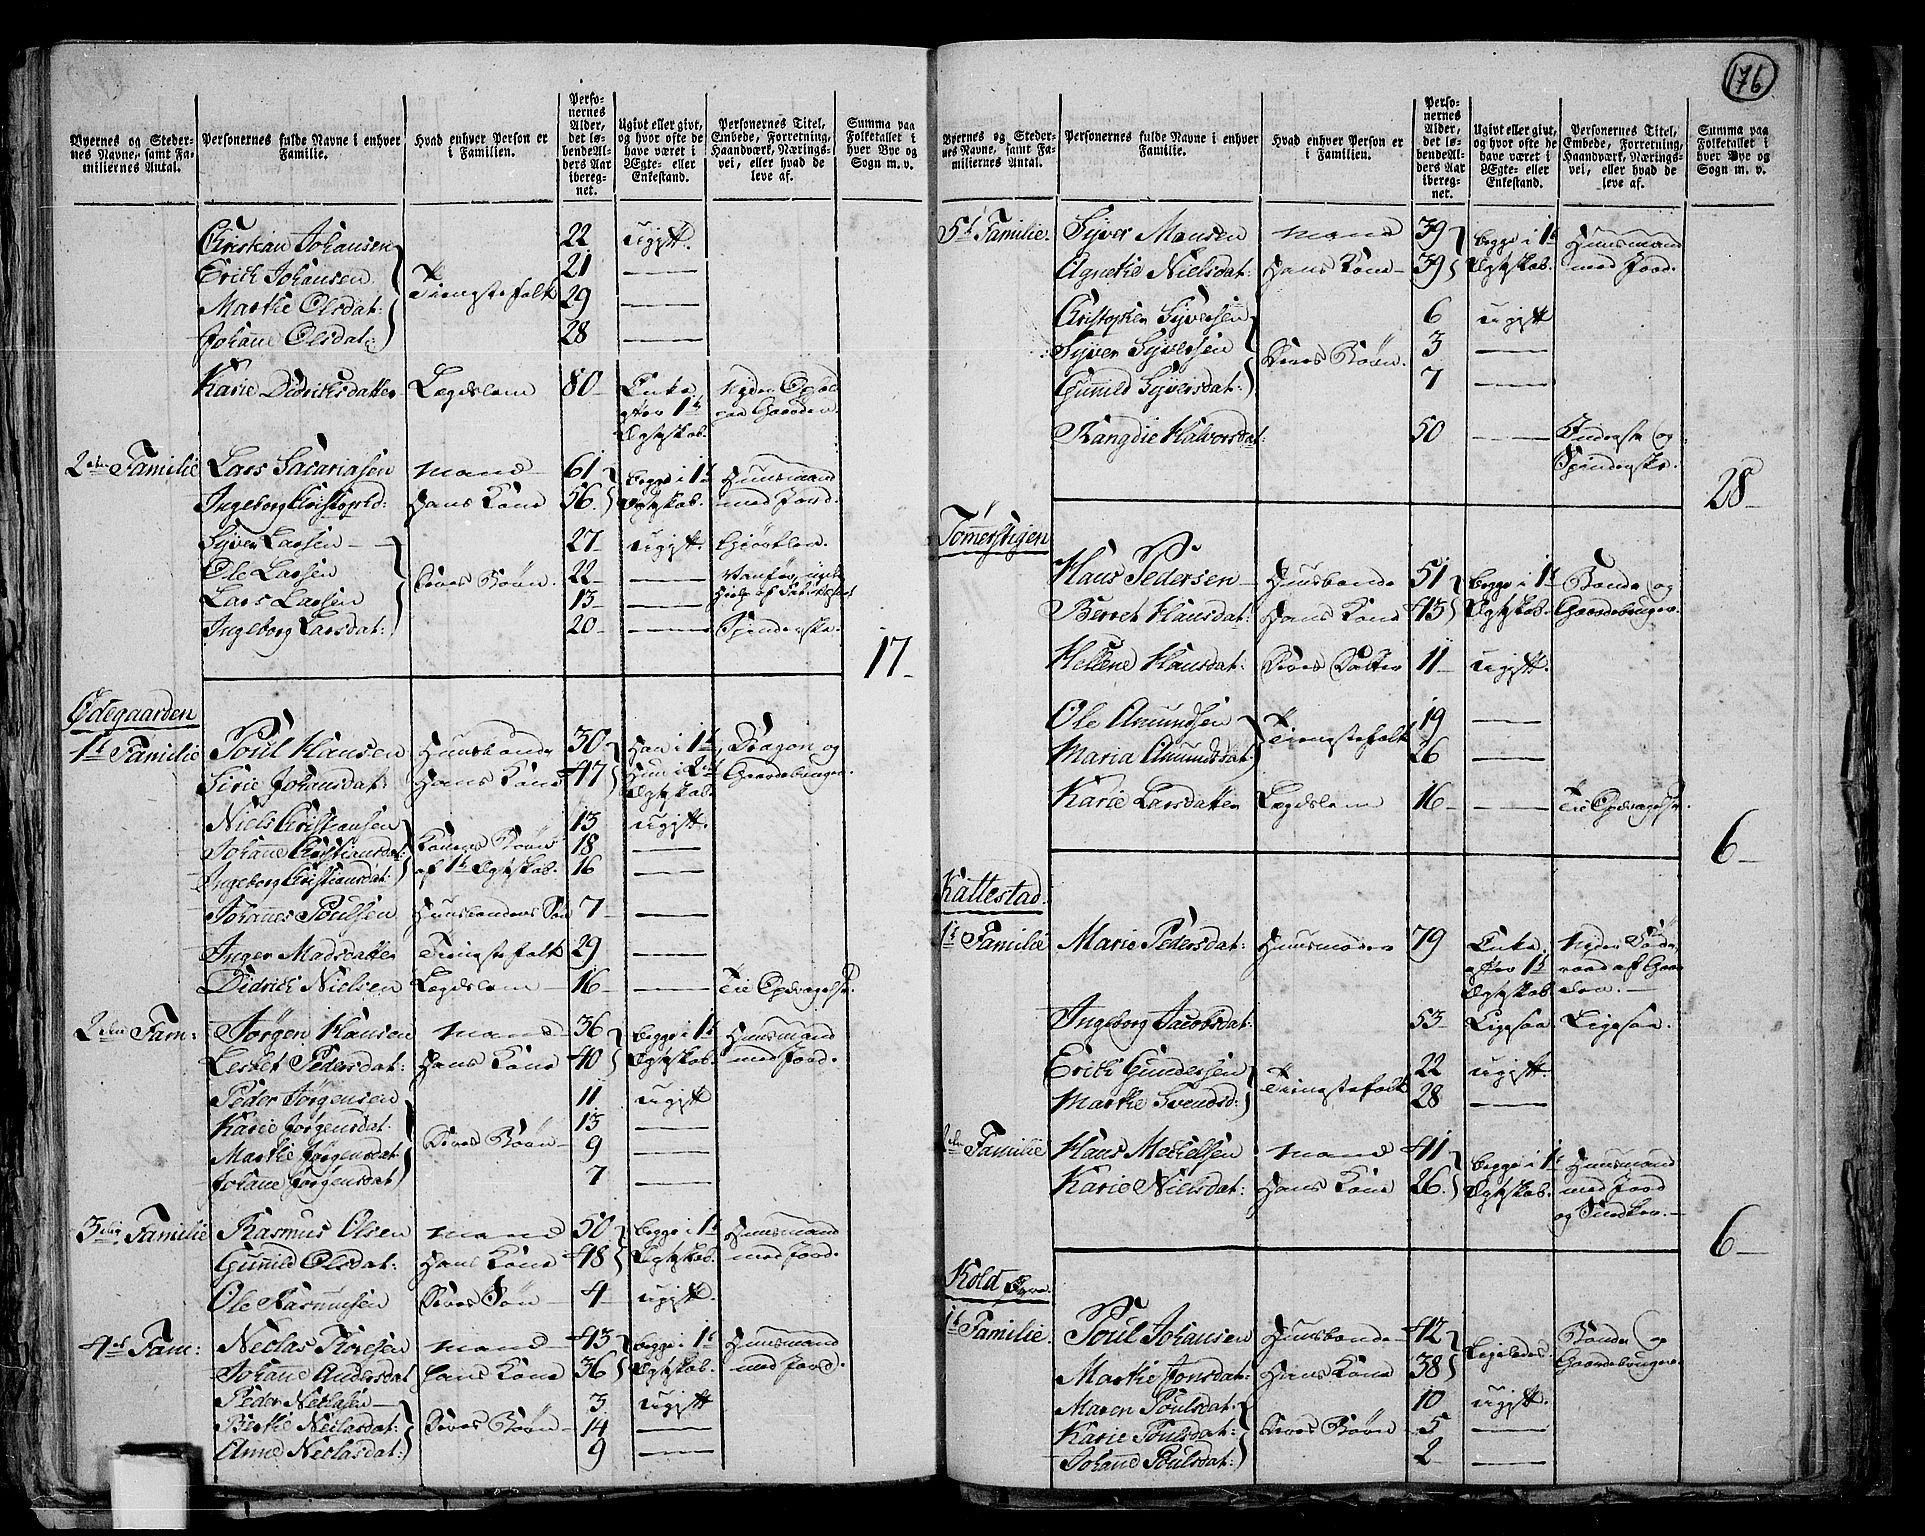 176
Byernes og Stedernes Navne, samt Familiernes Antal. Personernes fulde Navne i enhver Familie. Hvad enhver Person er i Familien. Personernes Alder, det løbende Alders Aar iberegnet. Ugivt eller givt, og hvor ofte de have været i Ægte- eller Enkestand. Personernes Titel, Embede, Forretning, Haandværk, Næringsvei, eller hvad de leve af. Summa paa Folketallet i hver Bye og Sogn m. v.
Christian Johansen 22 ugivt
Erich Johansen Tienestefolk 21 —
Marthe Olsdat: 29 —
Johanne Olsdat: 28 —
Karie Didrichsdatter Lægdslem 80 Enke efter 1te Ægteskab.
2den Familie Lars Sacariasen Mand 61 begge i 1te Huusmand
Ingeborg Christophd: Hans Kone 56 Ægteskab. med Jord.
Syver Larsen 27 ugivt.
Ole Larsen Deres Børn. 22 —
Lars Larsen 13 —
Ingeborg Larsdat: 20 — Spinderske.
17
Ødegaarden
1te Familie Poul Hansen Huusbonde 30 Han i 1te Dragon og
Sirie Johansdat: Hans Kone 47 Hun i 2det Ægteskab Gaardebruger.
Niels Christiansen 13 ugivt.
Johanne Christiansdat: Konens Børn 18 —
Ingeborg Christiansdat: af 1te Ægteskab. 16 —
Johannes Poulsen Huusbondens Søn 7 —
Inger Madsdatter Tienestefolk 29 —
Didrich Nielsen Lægdslem 16 — Til Opdragelse.
2den Fam: Jørgen Hansen Mand 36 begge i 1te Huusmand
Lesbet Pedersdat: Hans Kone 40 Ægteskab. med Jord.
Peder Jørgensen 11 ugivt
Karie Jørgensdat: 13 —
Marthe Jørgensdat: Deres Børn 9 —
Johane Jørgensdat 7 —
3die Familie Rasmus Olsen Mand 50 begge i 1te Huusmand
Gunild Olsdat: Hans Kone 48 Ægteskab med Jord.
Ole Rasmusen Deres Søn 4 ugivt.
4de Fam: Neclas Thoresen Mand 43 begge i 1te Huusmand
Johanne Andersdat Hans Kone 36 Ægteskab. med Jord.
Peder Neclasen 3 ugivt
Berthe Neclasdat: Deres Børn 14 —
Anne Neclasdat: 9 —
Byernes og Stedernes Navne, samt Familiernes Antal. Personernes fulde Navne i enhver Familie. Hvad enhver Person er i Familien. Personernes Alder, det løbende Alders Aar iberegnet. Ugivt eller givt, og hvor ofte de have været i Ægte- eller Enkestand. Personernes Titel, Embede, Forretning, Haandværk, Næringsvei, eller hvad de leve af. Summa paa Folketallet i hver Bye og Sogn m. v.
5te Familie. Syver Monsen Mand 39 begge i 1te Huusmand
Agnethe Nielsdat: Hans Kone 39 Ægteskab. med Jord.
Christopher Syversen 6 ugivt
Syver Syversen Deres Børn. 3 —
Gunild Syversdat: 7 —
Rangdie Halvorsdat: 50 — Inderste og Spinderske.
28
Tømerstigen
Hans Pedersen Huusbonde 51 begge i 1te Bonde og
Berret Hansdat: Hans Kone 43 Ægteskab. Gaardebruger.
Hellene Hansdat: Deres Datter 11 ugivt.
Ole Amundsen Tienestefolk 19 —
Maria Amundsdat: 26 —
Karie Larsdatter Lægdslem 16 — Til Opdragelse.
6
Kattestad.
1te Familie Marie Pedersdat: Huusmoder 79 Enke efter 1te Ægteskab Nyder Føderaad af Gaarden.
Ingeborg Jacobsdat: 53 Ligesaa Ligesaa.
Erich Gundersen Tienestefolk 22 ugivt.
Marthe Svendsd: 28 —
2den Familie Hans Mechelsen Mand 41 begge i 1te Huusmand
Karie Nielsdat: Hans Kone 26 Ægteskab. med Jord og Snedker.
6
Kold
1te Familie. Poul Johansen Huusbonde 42 Ligeledes. Bonde og
Marthe Jonsdat: Hans Kone 38 Gaardebruger.
Maren Poulsdat. 10 ugivt.
Karie Poulsdat: Deres Børn 5 —
Johanne Poulsdat: 2 —